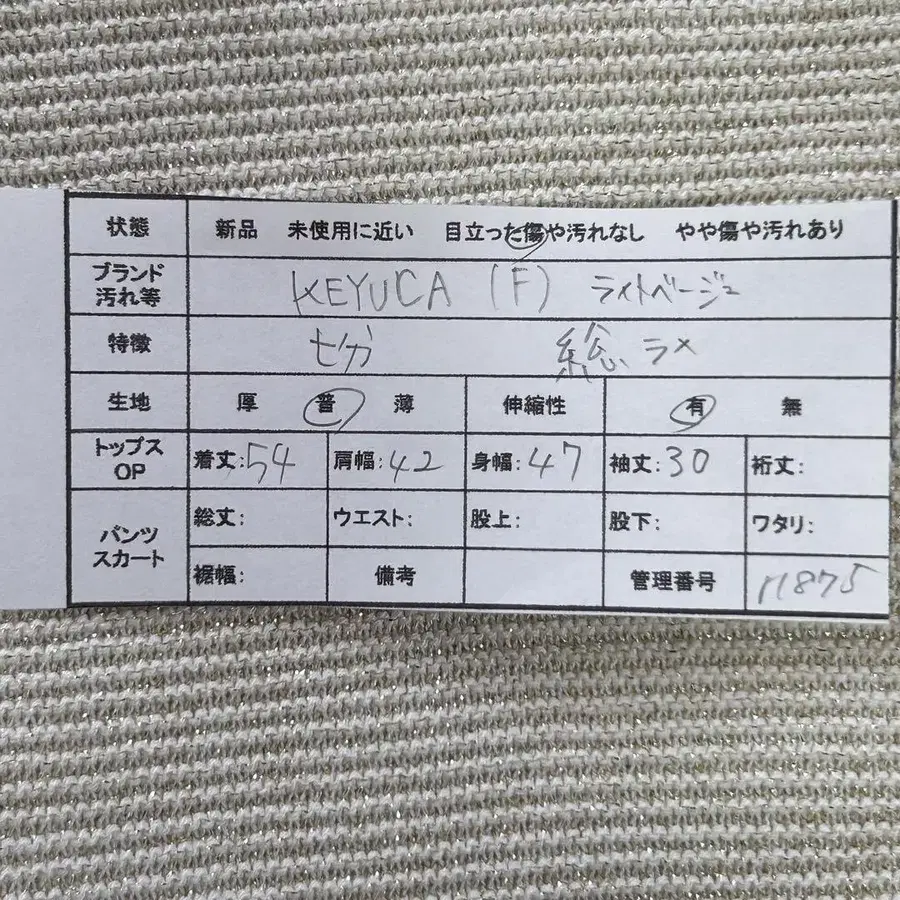 状態 新品 未使用に近い 目立った傷や汚れなし やや傷や汚れあり
ブランド
汚れ等 KEYUCA (F) ライトベージュ
特徴 七分 総ラメ
生地 厚 普 薄 伸縮性 有 無
トップス
OP 着丈:54 肩幅:42 身幅:47 袖丈:30 裄丈:
パンツ
スカート 総丈: ウエスト: 股上: 股下: ワタリ:
裾幅: 備考 管理番号 r1875